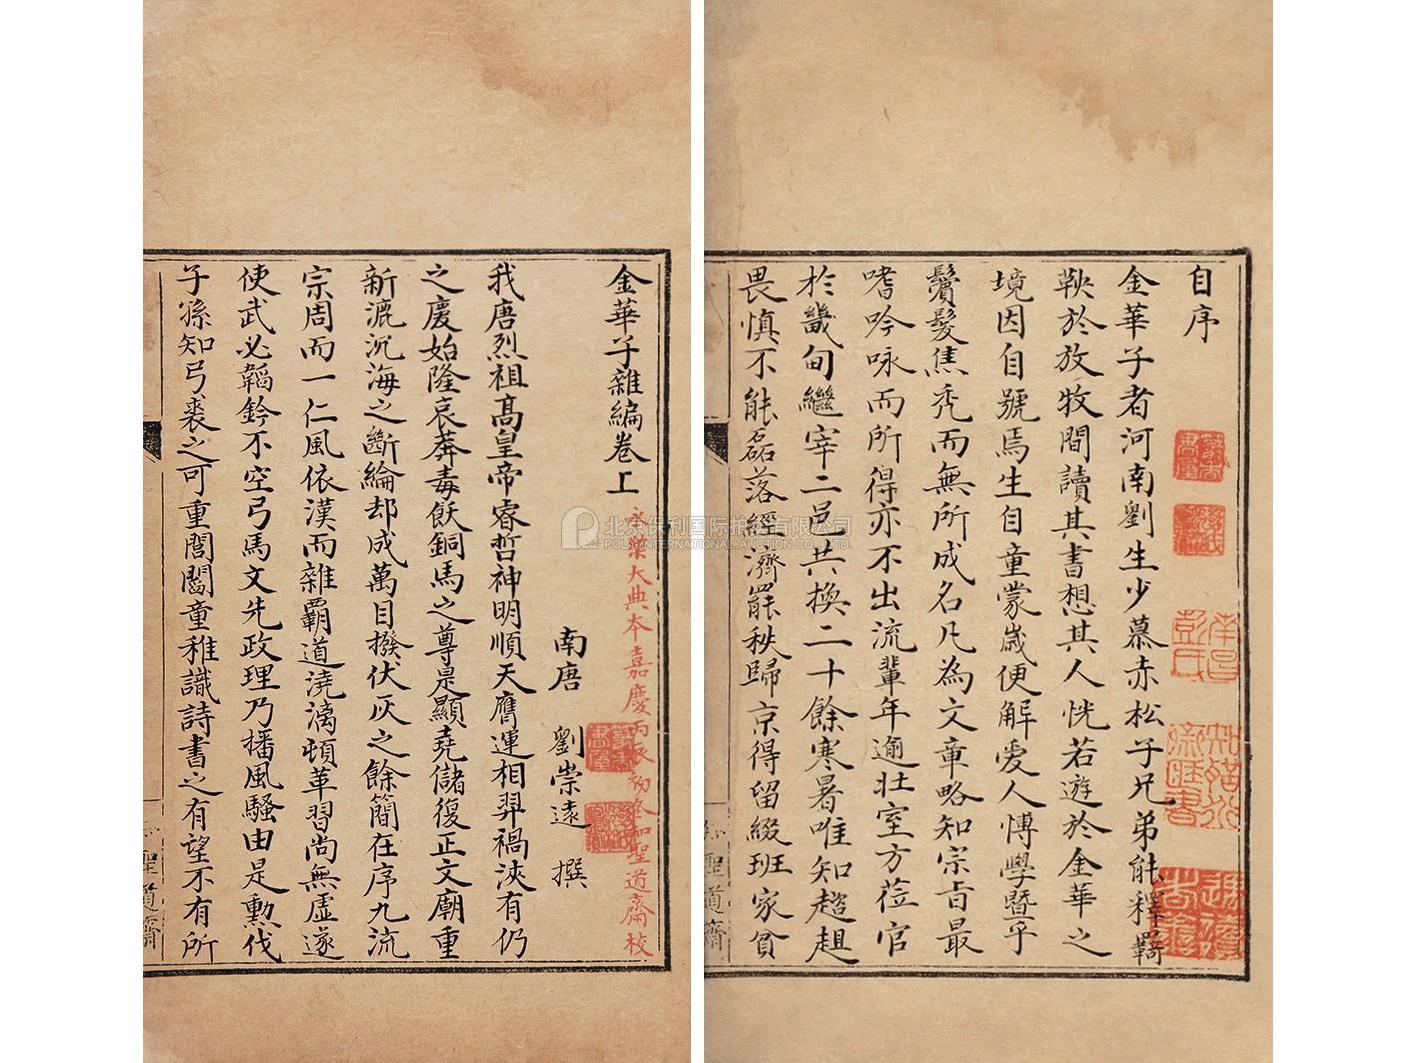 自序
金華子者河南劉生少慕赤松子兄弟能釋羇
鞅於放牧間讀其書想其人恍若遊於金華之
境因自號焉生自童蒙歲便解愛人博學暨乎
鬢髮焦禿而無所成名凡為文章略知宗旨最
嗜吟咏而所得亦不出流輩年逾壯室方蒞官
於畿甸繼宰二邑共換二十餘寒暑唯知趑趄
畏慎不能磊落經濟罷秩歸京得留綴班家貧
南昌
彭氏
知聖道齋
金華子雜編卷上
永樂大典本嘉慶丙辰初冬知聖道齋校
南唐 劉崇遠 撰
我唐烈祖高皇帝睿哲神明順天膺運相羿禍浹有仍
之慶始隆哀莽毒飫銅馬之尊是顯堯儲復正文廟重
新漉沉海之斷綸却成萬目撥伏灰之餘簡在序九流
宗周而一仁風依漢而雜霸道澆漓頓革習尚無虛遂
使武必韜鈐不空弓馬文先政理乃播風騷由是勲伐
子孫知弓裘之可重閭閻童稚識詩書之有望不有所
聖道齋
北京保利国际拍卖有限公司
POLY INTERNATIONAL AUCTION CO., LTD.